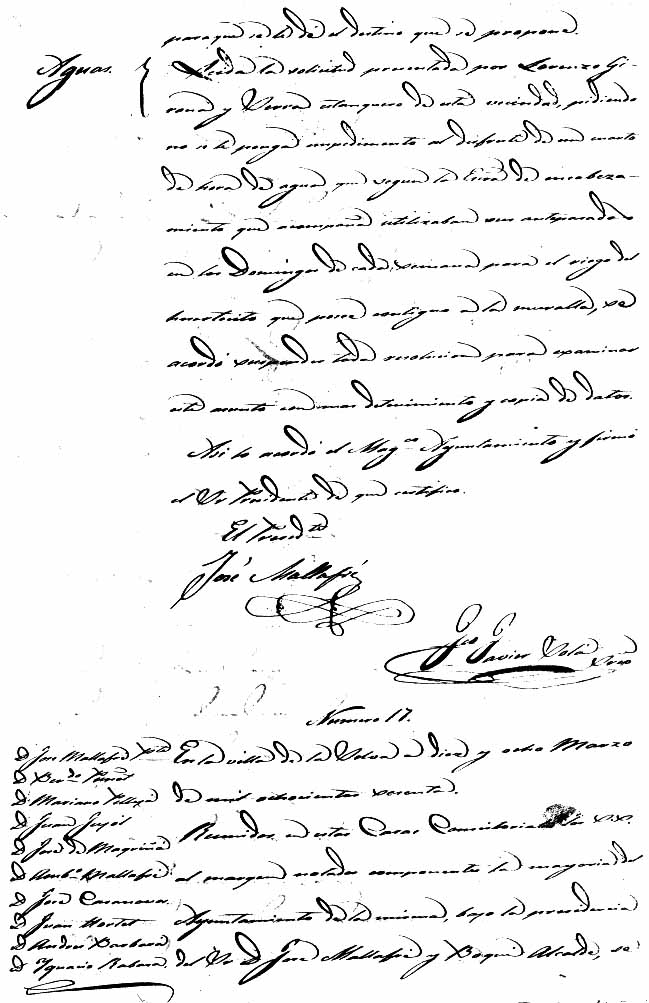 para que se les dé el destino que se propone.
Aguas. Leida la solicitud presentada por Lorenzo Gi-
rona y Serra estanquero de esta vecindad, pidiendo
no se le ponga impedimento al disfrute de un cuarto
de hora de agua, que segun la Escra de encabeza-
miento que acompaña utilizaban sus antepasados
en los Domingos de cada semana para el riego del
huertecito que posee contiguo a la muralla, se
acordó suspender toda resolucion para examinar
este asunto con mas detenimiento y copia de datos.
Asi lo acordó el Magco Ayuntamiento y firmó
el Sr Presidente de que certifico.
El Presidte
José Mallafré
Fco Javier Solá Srio
Numero 17.
D José Mallafré Pte
D Berdo
D Mariano
D Juan Jujol
D José de Magriñá
D Ambo Mallafré
D José Casanovas
D Juan Hortet
D Andres Barberá
D Ignacio
En la villa de la Selva a diez y ocho Marzo
de mil ochocientos sesenta.
Reunidos en estas Casas Consistoriales los S.S.
al margen notados componentes la mayoria del
Ayuntamiento de la misma, bajo la presidencia
del Sr D José Mallafré y Boqué Alcalde, se